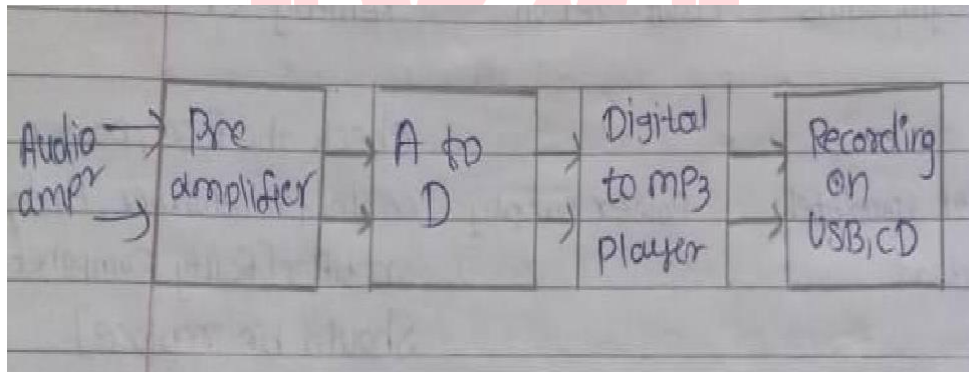 Audio
ampr
Pre
amplifier
A to
D
Digital
to mp3
player
Recording
on
USB, CD